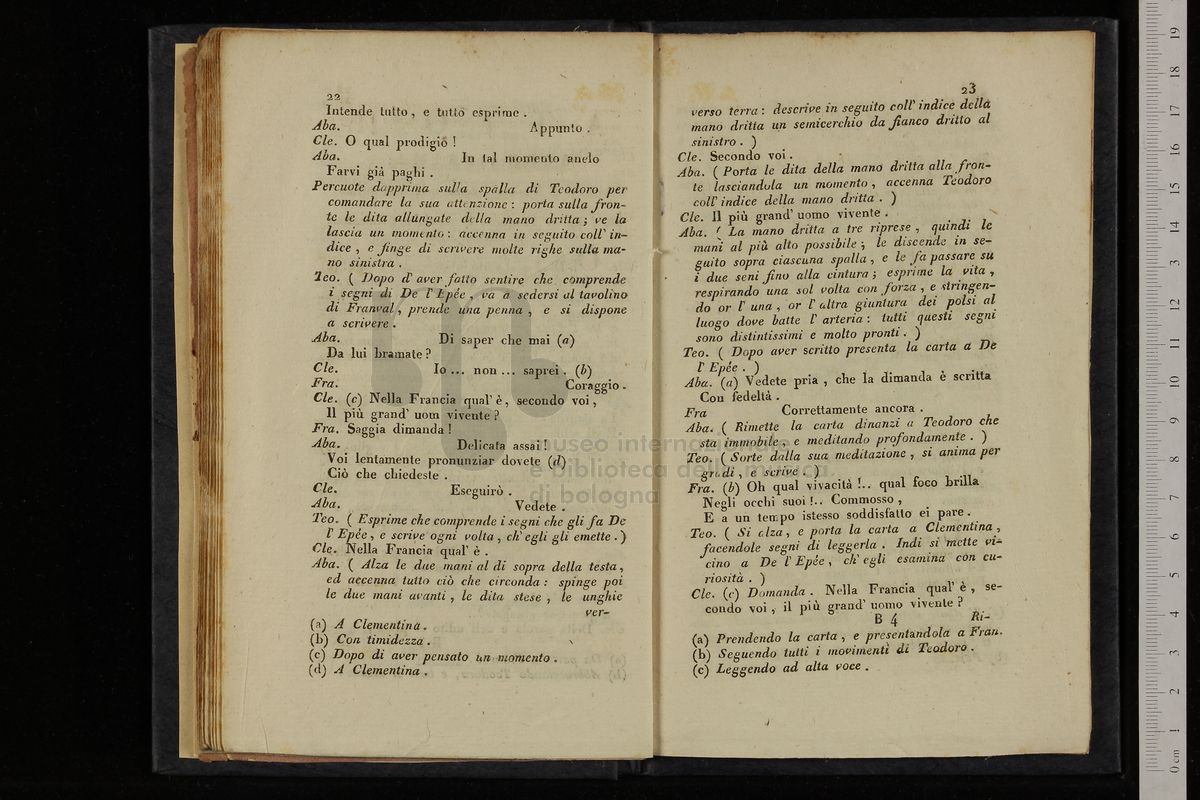 22
Intende tutto, e tutto esprime.
Aba. Appunto.
Cle. O qual prodigio!
Aba. In tal momento anelo
Farvi già paghi.
Percuote dapprima sulla spalla di Teodoro per
comandare la sua attenzione: porta sulla fron-
te le dita allungate della mano dritta; ve la
lascia un momento: accenna in seguito coll' in-
dice, e finge di scrivere molte righe sulla ma-
no sinistra.
Teo. ( Dopo d' aver fatto sentire che comprende
i segni di De l' Epée, va a sedersi al tavolino
di Franval, prende una penna, e si dispone
a scrivere.
Aba. Di saper che mai (a)
Da lui bramate?
Cle. Io... non... saprei. (b)
Fra. Coraggio.
Cle. (c) Nella Francia qual' è, secondo voi,
Il più grand' uom vivente?
Fra. Saggia dimanda!
Aba. Delicata assai!
Voi lentamente pronunziar dovete (d)
Ciò che chiedeste.
Cle. Eseguirò.
Aba. Vedete.
Teo. ( Esprime che comprende i segni che gli fa De
l' Epée, e scrive ogni volta, ch' egli gli emette. )
Cle. Nella Francia qual' è.
Aba. ( Alza le due mani al di sopra della testa,
ed accenna tutto ciò che circonda: spinge poi
le due mani avanti, le dita stese, le unghie
ver-
(a) A Clementina.
(b) Con timidezza.
(c) Dopo di aver pensato un momento.
(d) A Clementina.
23
verso terra: descrive in seguito coll' indice della
mano dritta un semicerchio da fianco dritto al
sinistro. )
Cle. Secondo voi.
Aba. ( Porta le dita della mano dritta alla fron-
te lasciandola un momento, accenna Teodoro
coll' indice della mano dritta. )
Cle. Il più grand' uomo vivente.
Aba. ( La mano dritta a tre riprese, quindi le
mani al più alto possibile; le discende in se-
guito sopra ciascuna spalla, e le fa passare su
i due seni fino alla cintura; esprime la vita,
respirando una sol volta con forza, e stringen-
do or l' una, or l' altra giuntura dei polsi al
luogo dove batte l' arteria: tutti questi segni
sono distintissimi e molto pronti. )
Teo. ( Dopo aver scritto presenta la carta a De
l' Epée. )
Aba. (a) Vedete pria, che la dimanda è scritta
Con fedeltà.
Fra Correttamente ancora.
Aba. ( Rimette la carta dinanzi a Teodoro che
sta immobile, e meditando profondamente. )
Teo. ( Sorte dalla sua meditazione, si anima per
gradi, e scrive. )
Fra. (b) Oh qual vivacità!.. qual foco brilla
Negli occhi suoi!.. Commosso,
E a un tempo istesso soddisfatto ei pare.
Teo. ( Si alza, e porta la carta a Clementina,
facendole segni di leggerla. Indi si mette vi-
cino a De l' Epée, ch' egli esamina con cu-
riosità. )
Cle. (c) Domanda. Nella Francia qual' è, se-
condo voi, il più grand' uomo vivente?
B 4 Ri-
(a) Prendendo la carta, e presentandola a Fran.
(b) Seguendo tutti i movimenti di Teodoro.
(c) Leggendo ad alta voce.
museo internazionale
e biblioteca della musica
di bologna
0 cm 1 2 3 4 5 6 7 8 9 10 11 12 13 14 15 16 17 18 19